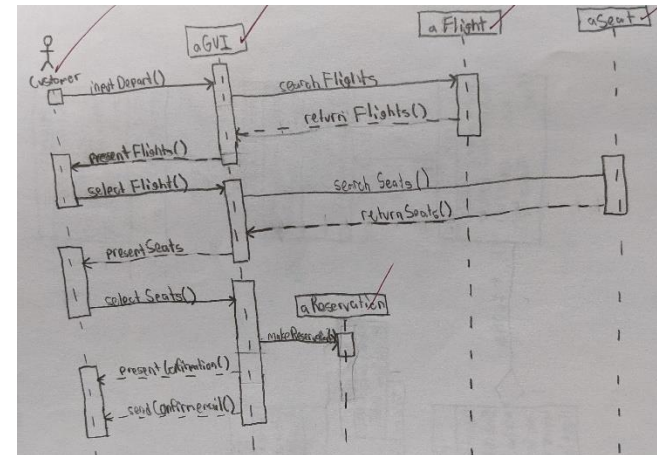 aGUI
a Flight
aSeat
Customer
inputDepart()
searchFlights
return Flights()
present Flights()
select Flight()
search Seats()
returnSeats()
present Seats
select Seats()
aReservation
makeReservation()
present Confirmation()
send Confirmemail()